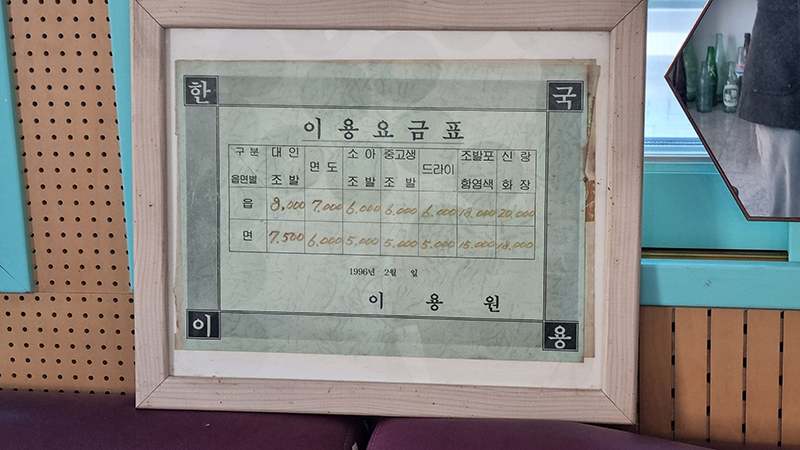 한 국
이 용 요 금 표
구 분 대 인 면 도 소 아 중고생 드라이 조발포 신 랑
읍면별 조 발 조 발 조 발 함염색 화 장
읍 8,000 7,000 6,000 6,000 6,000 18,000 20,000
면 7,500 6,000 5,000 5,000 5,000 15,000 18,000
1996년 2월 일
이 용 원
이 용